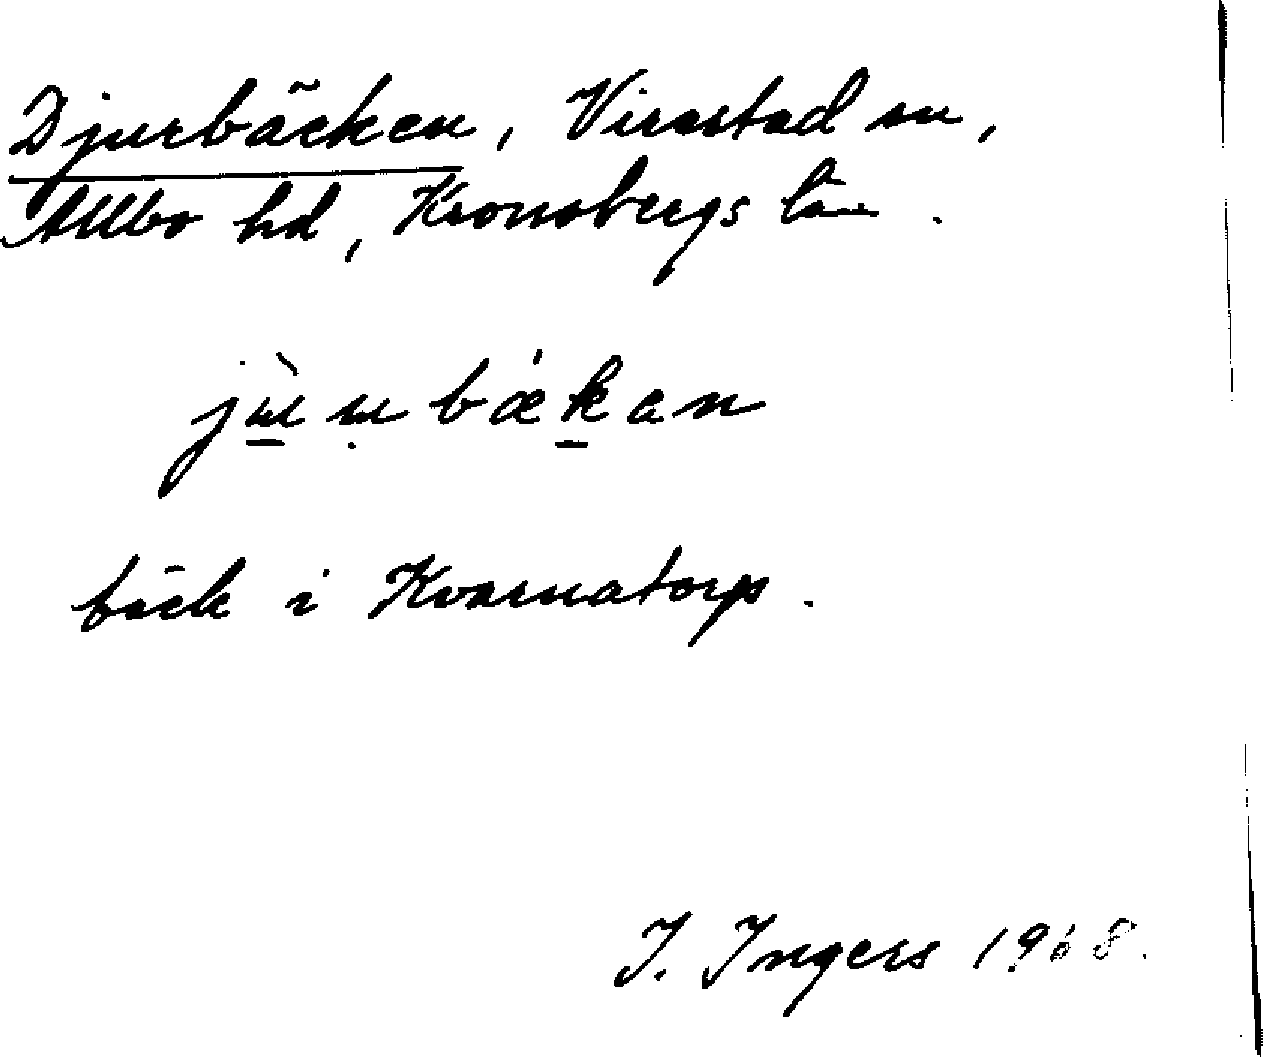 Djurbäcken, Virestad sn,
Allbo hd, Kronobergs län.
bäck i Kvarnatorp.
I. Ingers 1968.